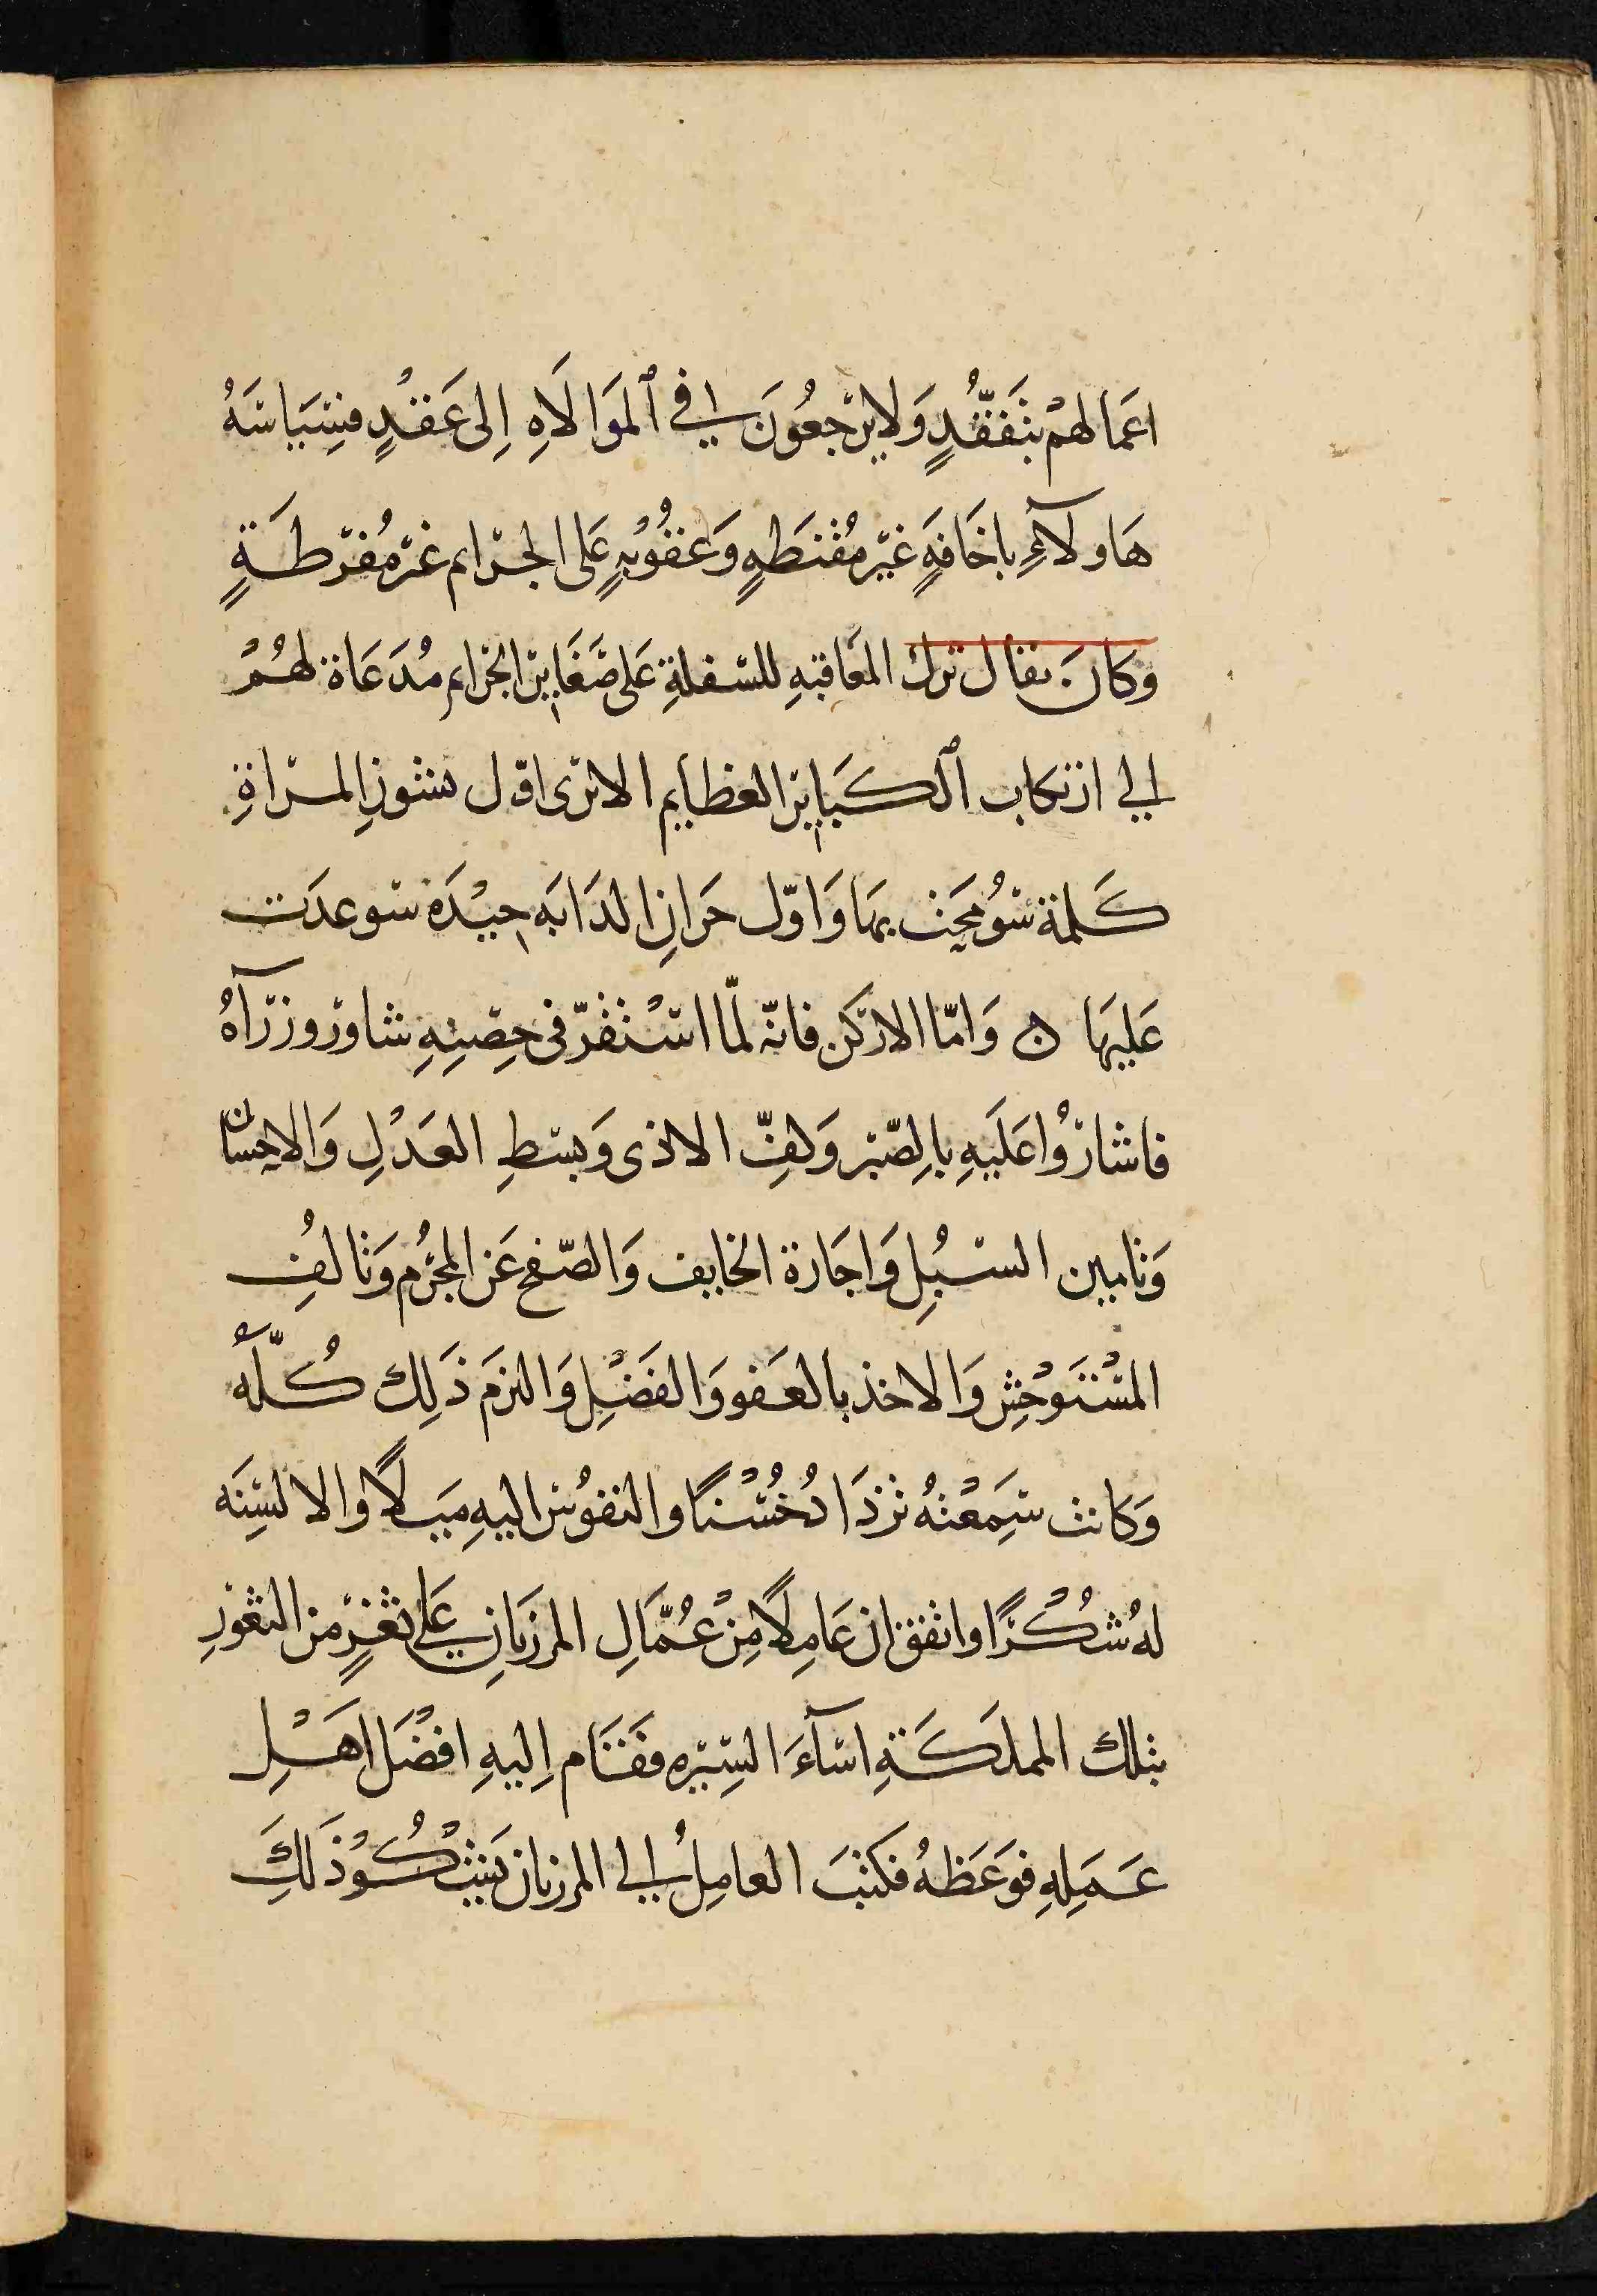 اعمالهم بتفقّدٍ ولا يرجعُونَ في ٱلموَالَاهِ اِلى عَقْدٍ فسِيَاسَهُ
هَاولآءِ باخَافَةٍ غيْر مُقْنطَهٍ وَعقُوُبهٍ عَلى الجرَايم غيْر مُفرّطةٍ
وَكانَ يقال ترك المعَاقبهِ للسّفلةِ عَلى صَغَايرْ الجرَايم مُدَعَاة لهُمْ
الي ارتكاب ٱلكبَايرْ العظايم الا ترى اوّل نشوزِ المرْاةِ
كَلمة سوُمحَت بهَا وَاوّل حَرانِ الدَابَه حيْدَه سوعدَت
عَليهَا ٥ وَامّا الاردكن فانّه لمّا اسْتقْرّ في حِصّتِهِ شاورْ وزرْآهُ
فاشارُوْا عَلَيهِ بالِصّبرْ وَكفِّ الاذى وَبسْطِ العَدْلِ وَالاحسَان
وَتامين السّبُلِ وَاجَارة الخايف وَالصّفح عَن المجْرُم وَتالفُِ
المسْتَوْحِش وَالاخذ بالعَفو وَالفَضْلِ وَالتزمَ ذَلِك كُلّه
وَكانت سُمَعْتهُ تزدَاد حُسْنًا والنفوُس اليهِ مَيلًا والالسِنَه
لهُ شُكرًا واتفق ان عَامِلًا مِنْ عُمّالِ المرزبَانِ عَلى ثغرٍ من الثغوْرِ
بتلك المملَكَةِ اسآءَ السّيرْه فقَام اِليهِ افضْل اهْلِ
عَمَلِهِ فوَعَظهُ فكتبَ العامِلُ الي المرزبان يَشْكُوْ ذَلِكَ